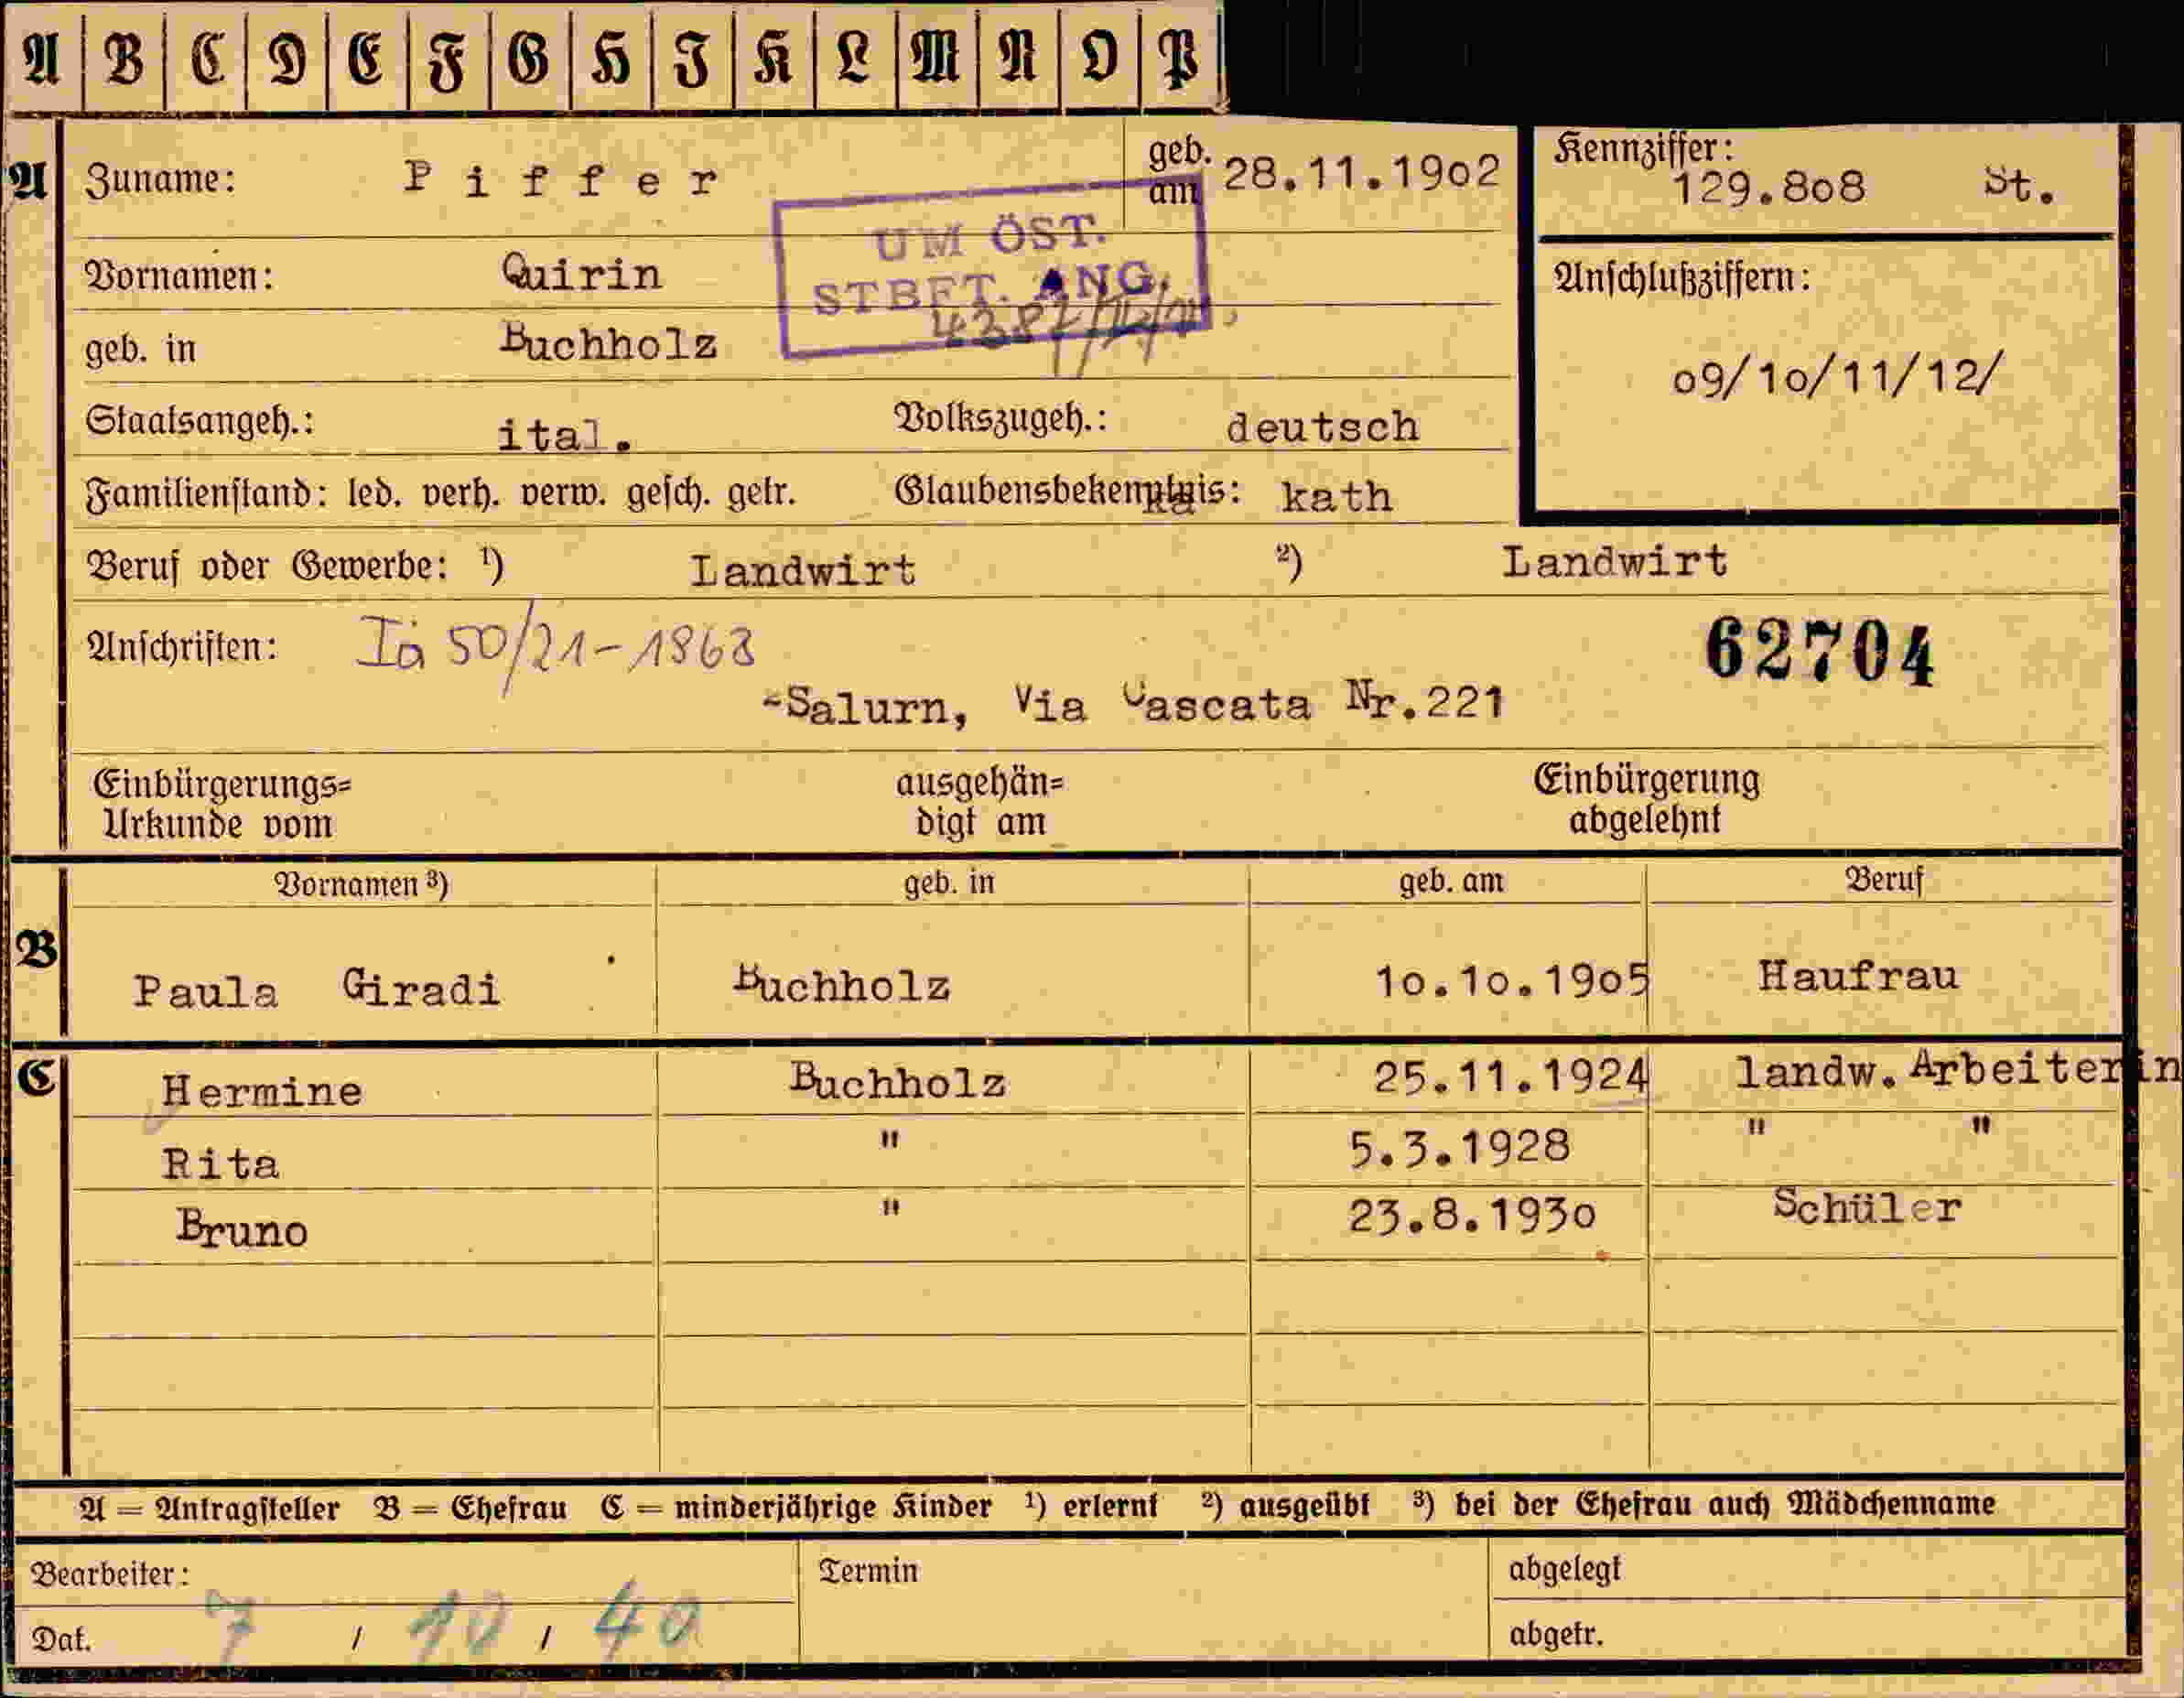 A B C D E F G H I K L M N O P
A Zuname: Piffer geb. am 28.11.1902 Kennziffer: 129.808 St.
UM ÖST.
STBFT. ANG.
Vornamen: Quirin Anschlußziffern:
geb. in Buchholz 09/10/11/12/
Staatsangeh.: ital. Volkszugeh.: deutsch
Familienstand: led. verh. verw. gesch. getr. Glaubensbekenntnis: kath
Beruf oder Gewerbe: ¹) Landwirt ²) Landwirt
Anschriften: 50/21-1863 62704
-Salurn, Via Cascata Nr.221
Einbürgerungs= ausgehän= Einbürgerung
Urkunde vom digt am abgelehnt
Vornamen ³) geb. in geb. am Beruf
B Paula Giradi Buchholz 10.10.1905 Haufrau
C Hermine Buchholz 25.11.1924 landw. Arbeiterin
Rita " 5.3.1928 " "
Bruno " 23.8.1930 Schüler
A = Antragsteller B = Ehefrau C = minderjährige Kinder ¹) erlernt ²) ausgeübt ³) bei der Ehefrau auch Mädchenname
Bearbeiter: Termin abgelegt
Dat. 7 / 10 / 40 abgetr.